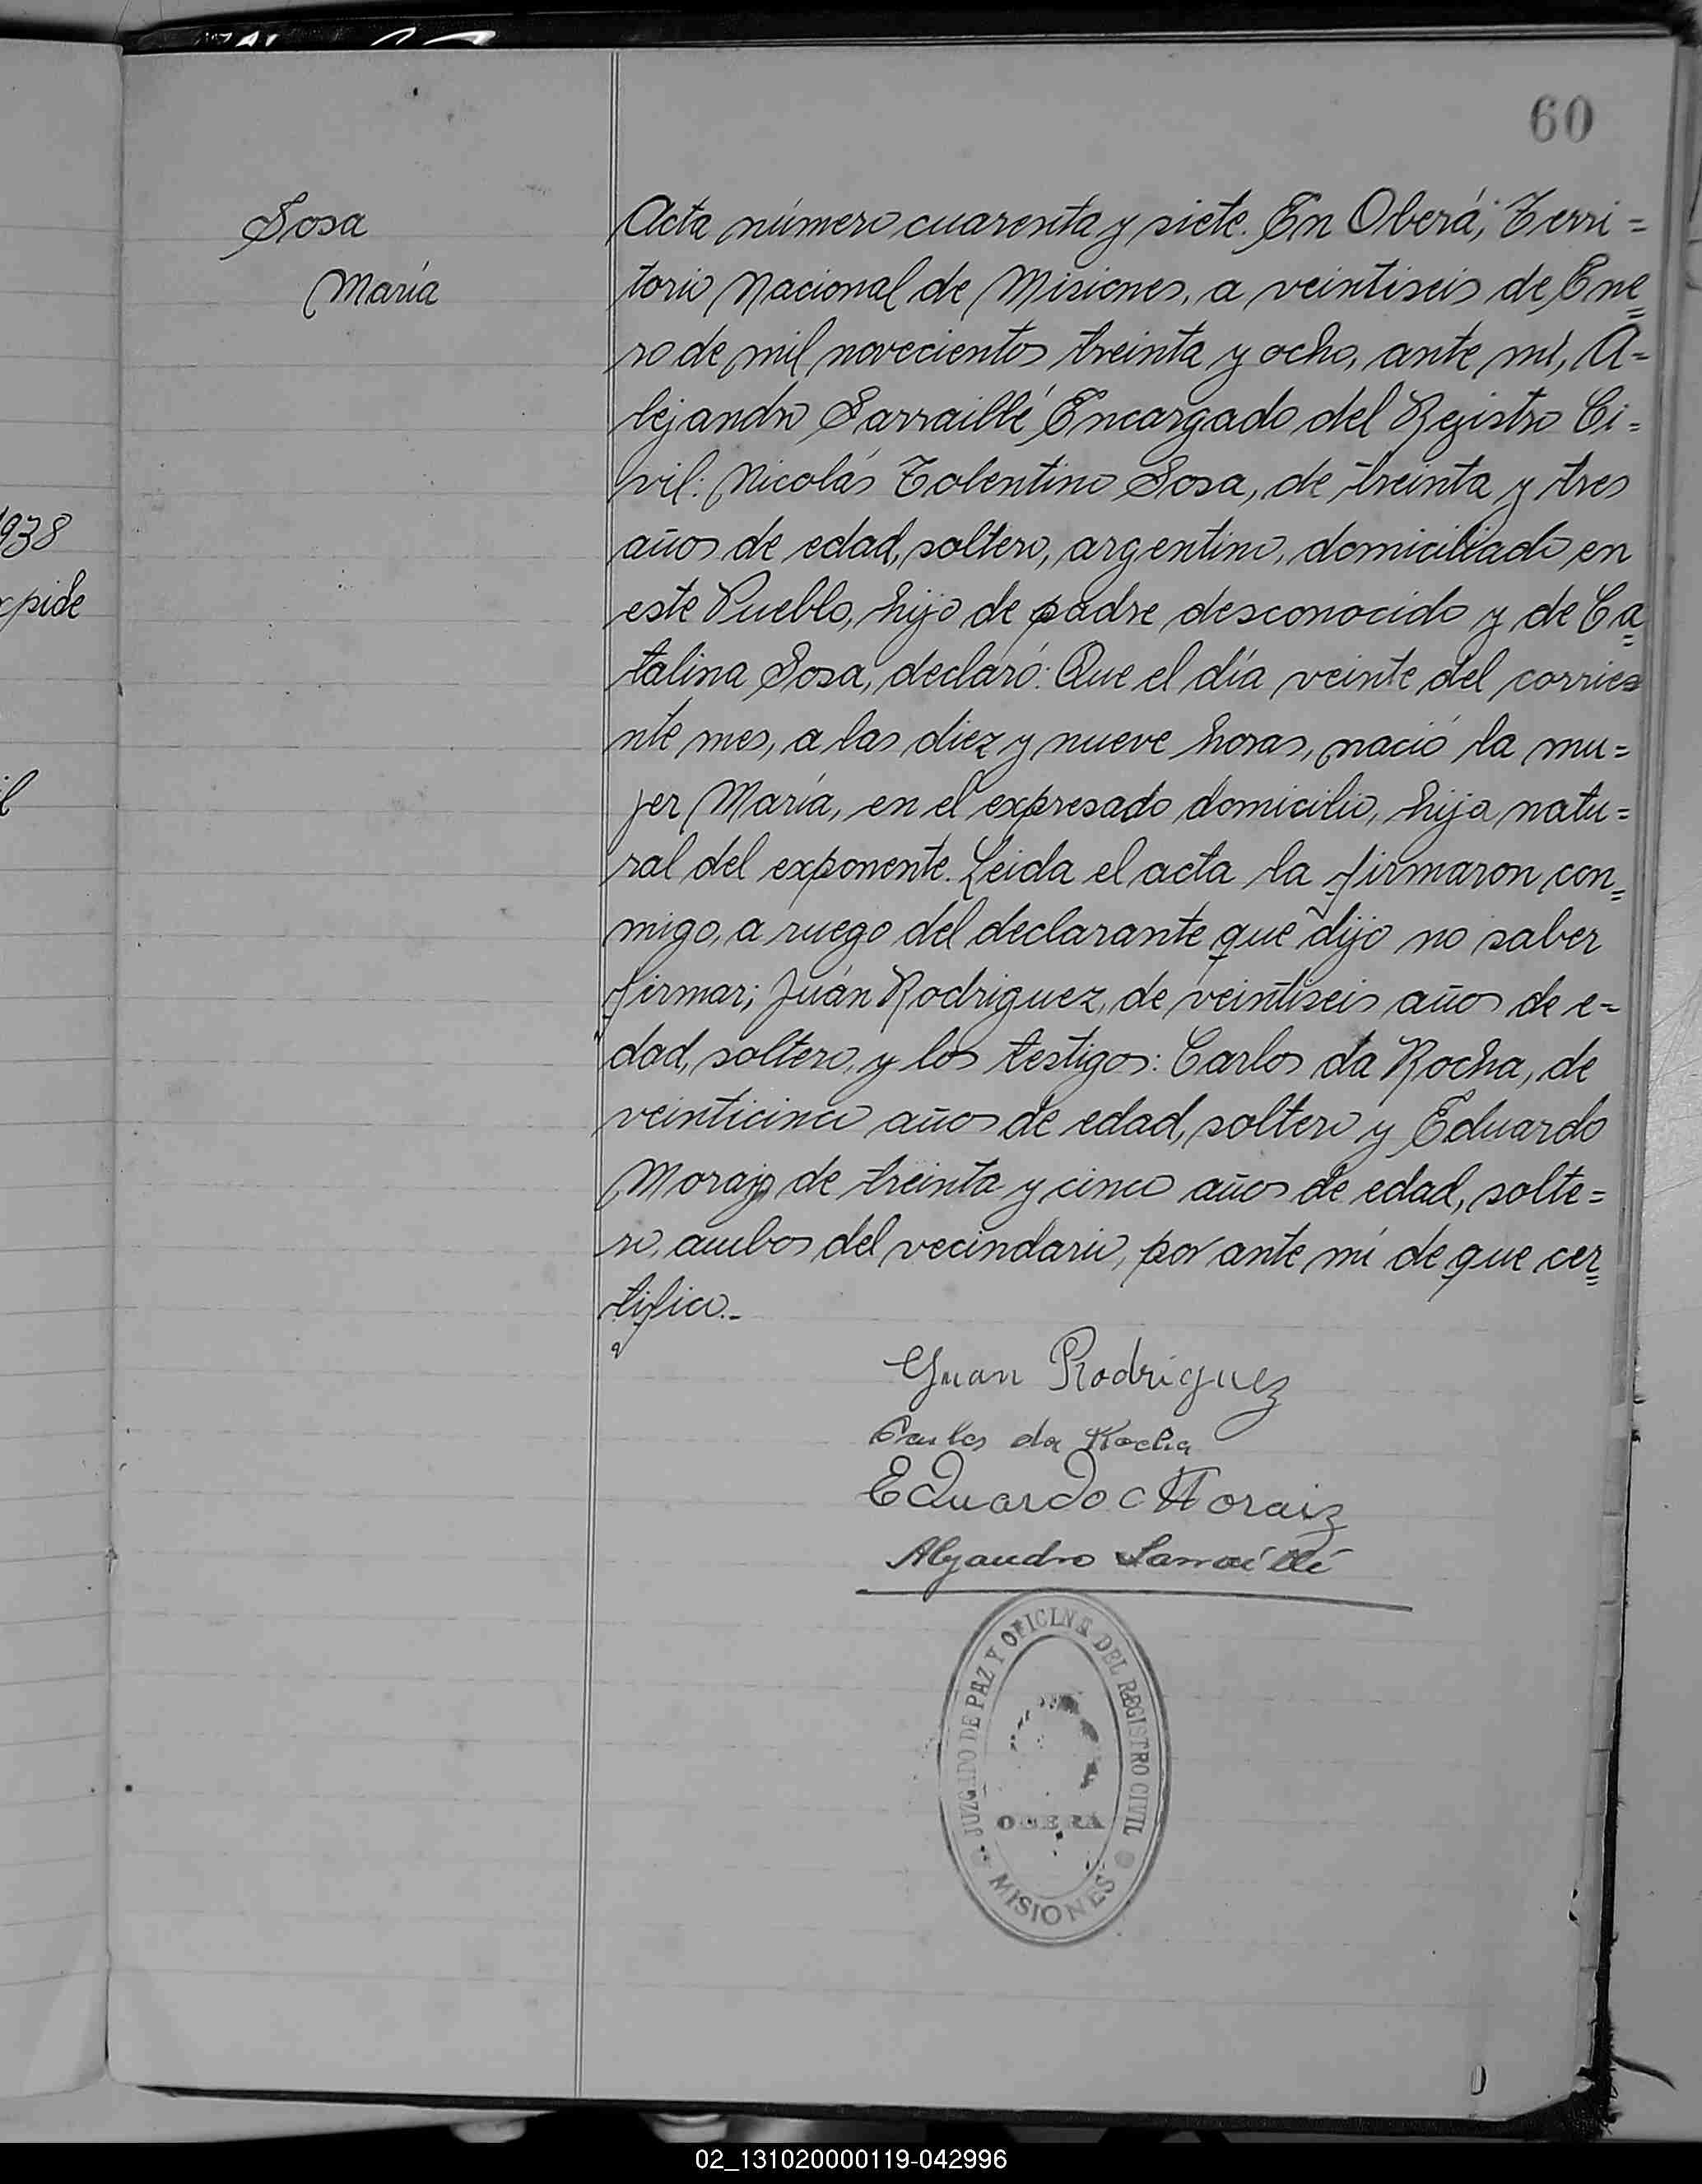 60
Sosa
María
Acta número cuarenta y siete. En Oberá, Terri=
torio Nacional de Misiones, a veintiseis de Ene=
ro de mil novecientos treinta y ocho, ante mí, A=
lejandro Sarraillé Encargado del Registro Ci=
vil: Nicolás Tolentino Sosa, de treinta y tres
años de edad, soltero, argentino, domiciliado en
este Pueblo, hijo de padre desconocido y de Ca=
talina Sosa, declaró: Que el día veinte del corrie=
nte mes, a las diez y nueve horas, nació la mu=
jer María, en el expresado domicilio, hija natu=
ral del exponente. Leida el acta la firmaron con=
migo, a ruego del declarante que dijo no saber
firmar; Juán Rodriguez, de veintiseis años de e=
dad, soltero, y los testigos: Carlos da Rocha, de
veinticinco años de edad, soltero y Eduardo
Moraiz de treinta y cinco años de edad, solte=
ro, ambos del vecindario, por ante mí de que cer=
tifico.-
Juan Rodriguez
Carlos da Rocha
Eduardo Moraiz
Alejandro Sarraillé
JUZGADO DE PAZ Y OFICINA DEL REGISTRO CIVIL
OBERA
MISIONES
1938
xpide
02_131020000119-042996